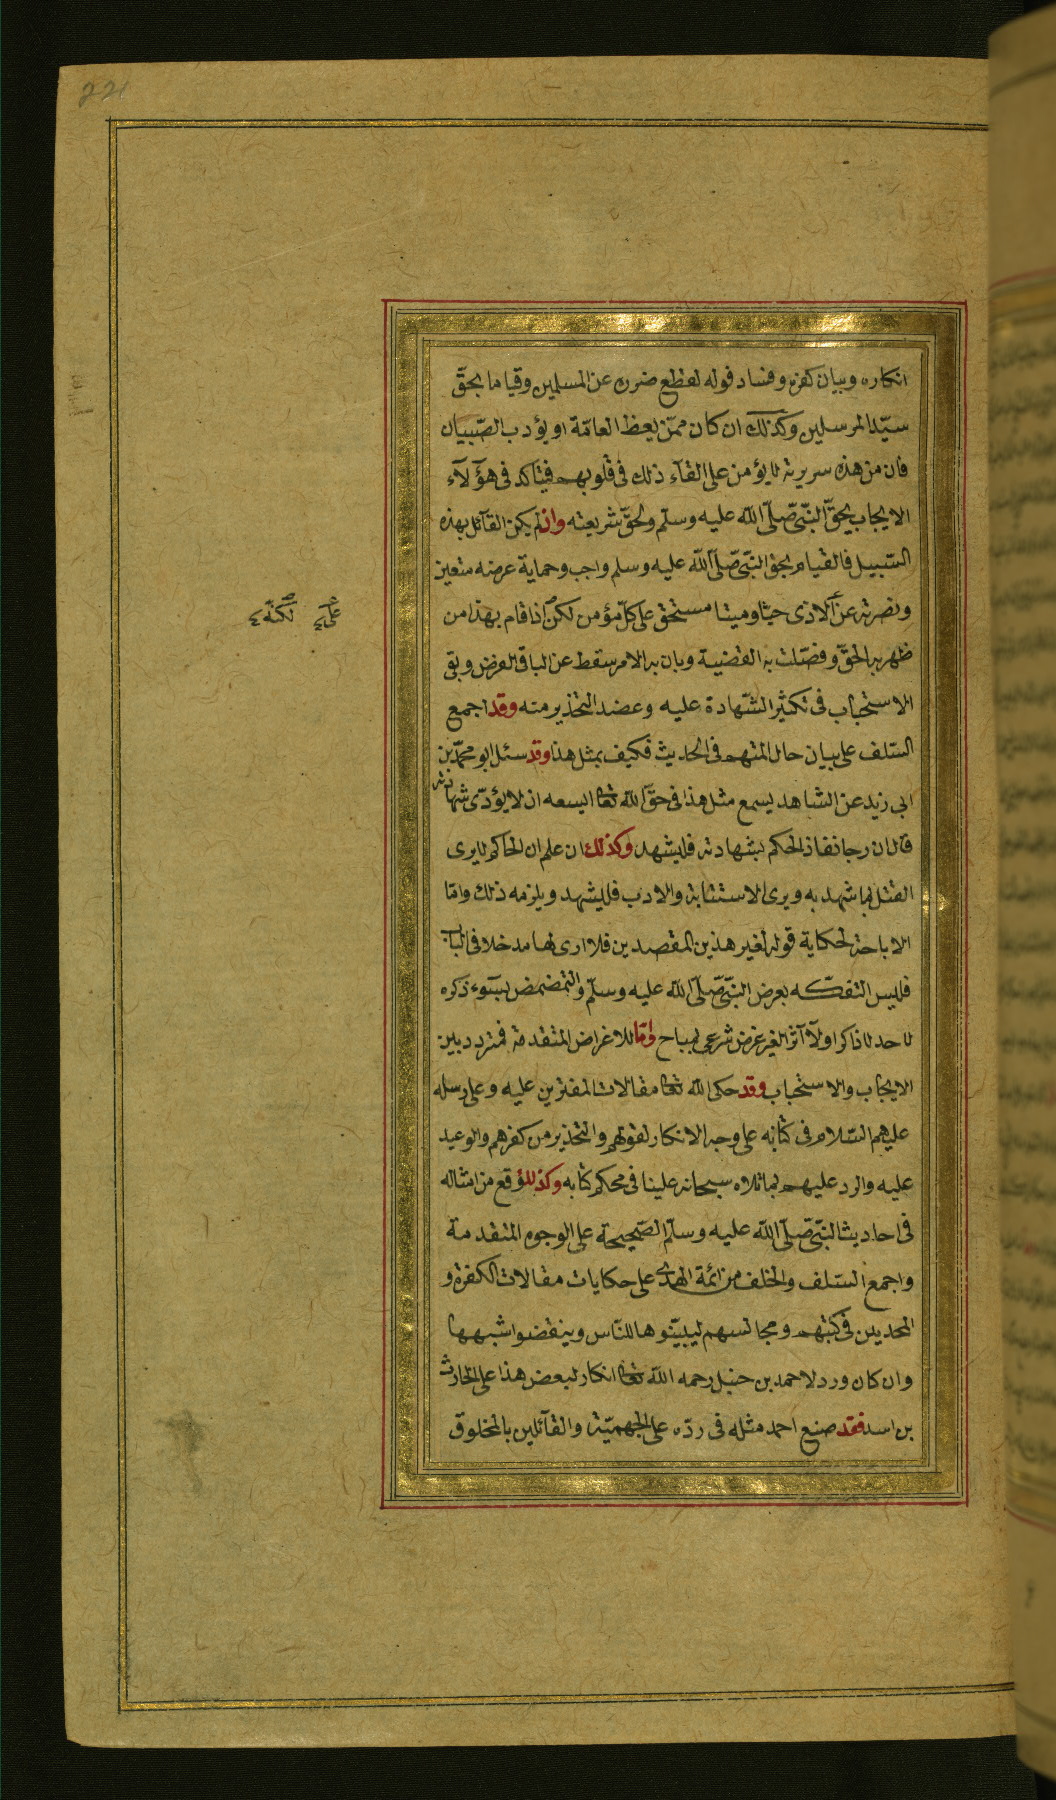 221
انكاره وبيان كفره وفساد قوله لقطع ضرره عن المسلمين وقياما بحقّ
سيّد المرسلين وكذلك ان كان ممّن يعظ العامّة او يؤدب الصّبيان
فان من هذه سريرته لا يؤمن على القآء ذلك فى قلوبهم فيتاكد فى هؤلآء
الايجاب بحقّ النّبىّ صلّى اللّه عليه وسلّم ولحقّ شريعته وان لم يكن القآئل بهذه
السّبيل فالقيام بحق النّبىّ صلّى اللّه عليه وسلم واجب وحماية عرضه متعين
ونصرته عن الاذى حيّا وميتا مستحق على كلّ مؤمن لكنّ اذا قام بهذا من
على لكنّه
ظهر به الحقّ وفصّلت به القضية وبان به الامر سقط عن الباقى الفرض وبقى
الاستحباب فى تكثير الشّهادة عليه وعضد التحذير منه وقد اجمع
السّلف على بيان حال المتهم فى الحديث فكيف بمثل هذا وقد سئل ابو محمّد بن
ابى زيد عن الشاهد يسمع مثل هذا فى حقّ اللّه تعالى ايسعه ان لا يؤدّى شهادته
قال ان رجا نفاذ الحكم بشهادته فليشهد وكذلك ان علم ان الحاكم لا يرى
القتل بما شهد به ويرى الاستتابة والادب فليشهد ويلزمه ذلك وامّا
الاباحة لحكاية قوله لغير هذين المقصدين فلا ارى لها مدخلا فى الباب
فليس التفكّه بعرض النّبىّ صلّى اللّه عليه وسلّم والتمضمض بسوء ذكره
لاحد لا ذاكرا ولا آثرا لغير غرض شرعى بمباح وامّا للاغراض المتقدمة فمتردد بين
الايجاب والاستحباب وقد حكى اللّه تعالى مقالات المفترين عليه وعلى رسله
عليهم السّلام فى كتابه على وجه الانكار لقولهم والتحذير من كفرهم والوعيد
عليه والرد عليهم بما تلاه سبحانه علينا فى محكم كتابه وكذلك وقع من امثاله
فى احاديث النّبىّ صلّى اللّه عليه وسلّم الصّحيحة على الوجوه المتقدمة
واجمع السّلف والخلف من ائمّة الهدى على حكايات مقالات الكفرة و
الملحدين فى كتبهم ومجالسهم ليبيّنوها للنّاس وينقضوا شبهها
وان كان ورد لاحمد بن حنبل رحمه اللّه تعالى انكار لبعض هذا على الحارث
بن اسد فقد صنع احمد مثله فى ردّه على الجهميّة والقآئلين بالمخلوق